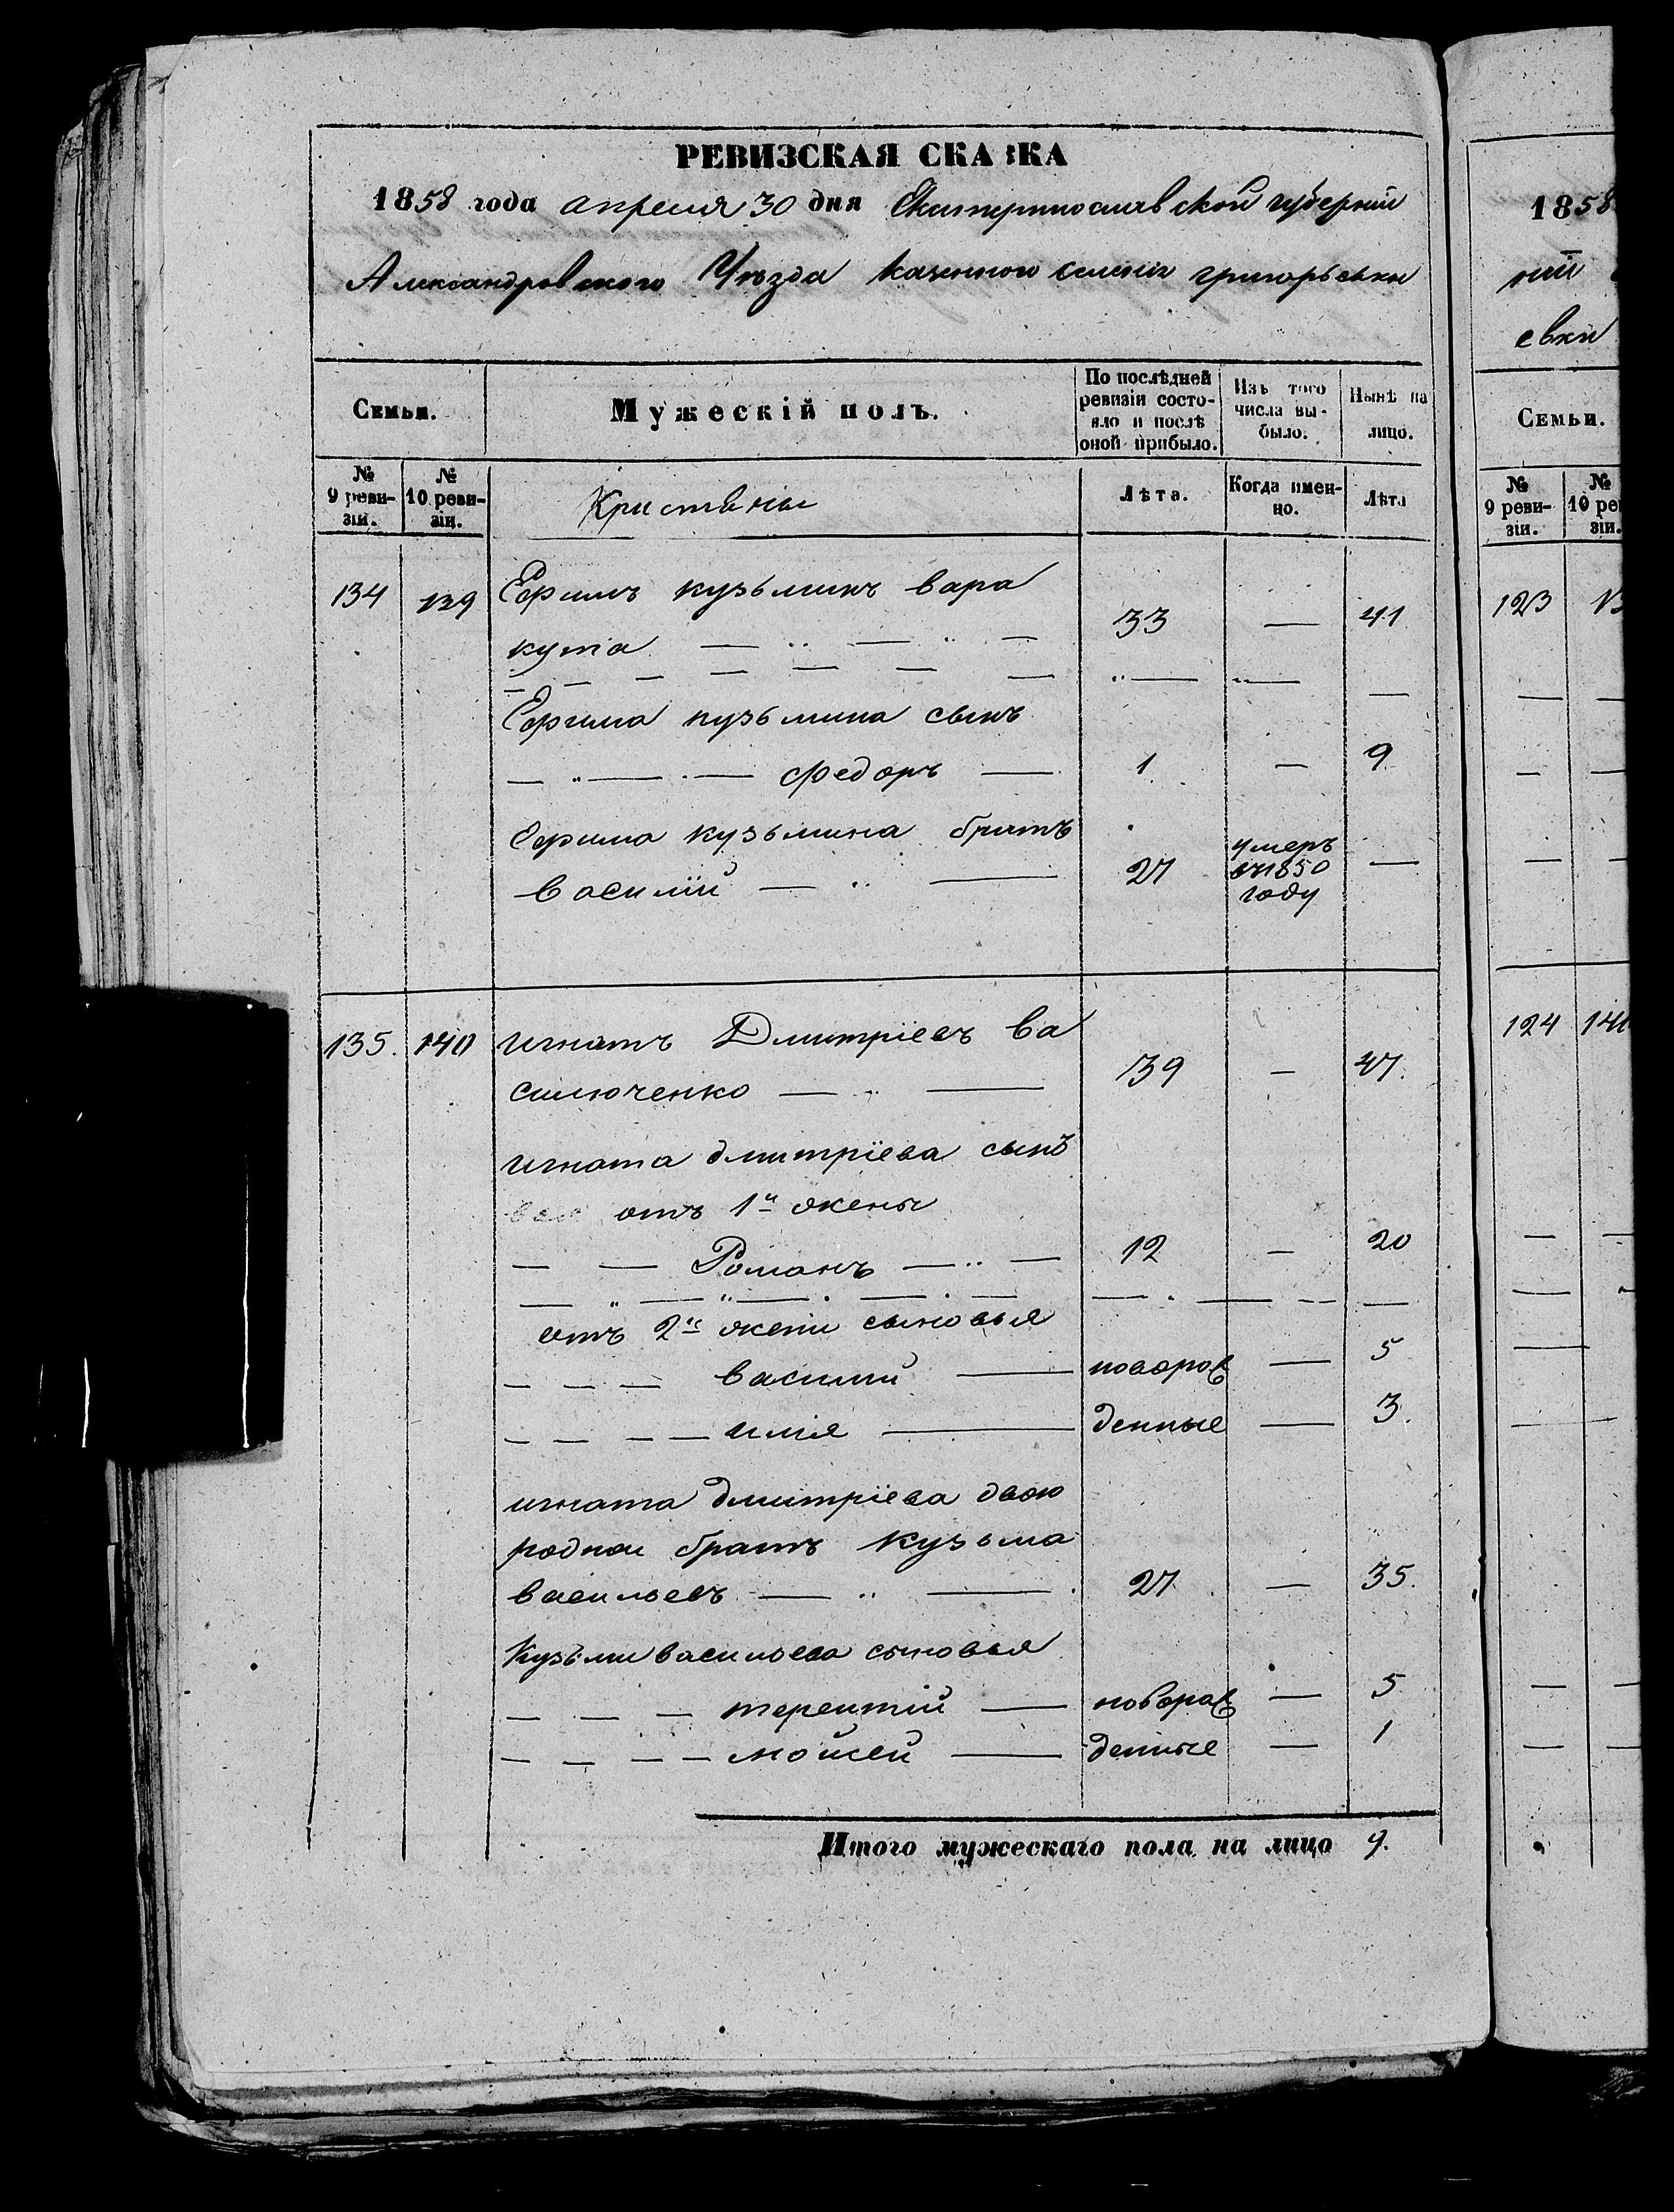 РЕВИЗСКАЯ СКАЗКА
1858 года апреля 30 дня Екатеринославской губернии
Александровского Уѣзда казенного селения григорьевки
Семьи.
Мужескій полъ.
По послѣдней ревизіи состояло и послѣ оной прибыло.
Изъ того числа выбыло.
Нынѣ на лицо.
№ 9 ревизіи.
№ 10 ревизіи.
Лѣта.
Когда именно.
Лѣта
134 139 Ефимъ кузьминъ вара
кута 33 — 41
Ефима кузьмина сынъ
федоръ — 1 — 9
Ефима кузьмина братъ
василій — 27 умеръ въ 1850 году —
135. 140 игнатъ Дмитріевъ ва
силюченко — 39 — 47.
игната дмитріева сынъ
отъ 1й жены
Романъ — 12 — 20
отъ 2й жены сыновья
василий — новорож — 5
илія — денные — 3.
игната дмитріева двою
родной братъ Кузьма
васильевъ — 27 — 35.
Кузьми васильева сыновья
терентий — новорож — 5
мойсей — денные — 1
Итого мужескаго пола на лицо 9.
1858
нии
евки
Семьи.
№ 9 ревизіи.
№ 10 ре
зіи.
123 13
124 14